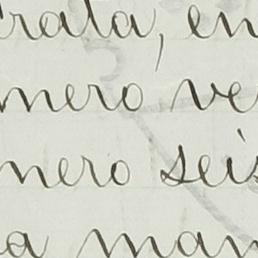 trata, en
mero ve
mero seis
a man